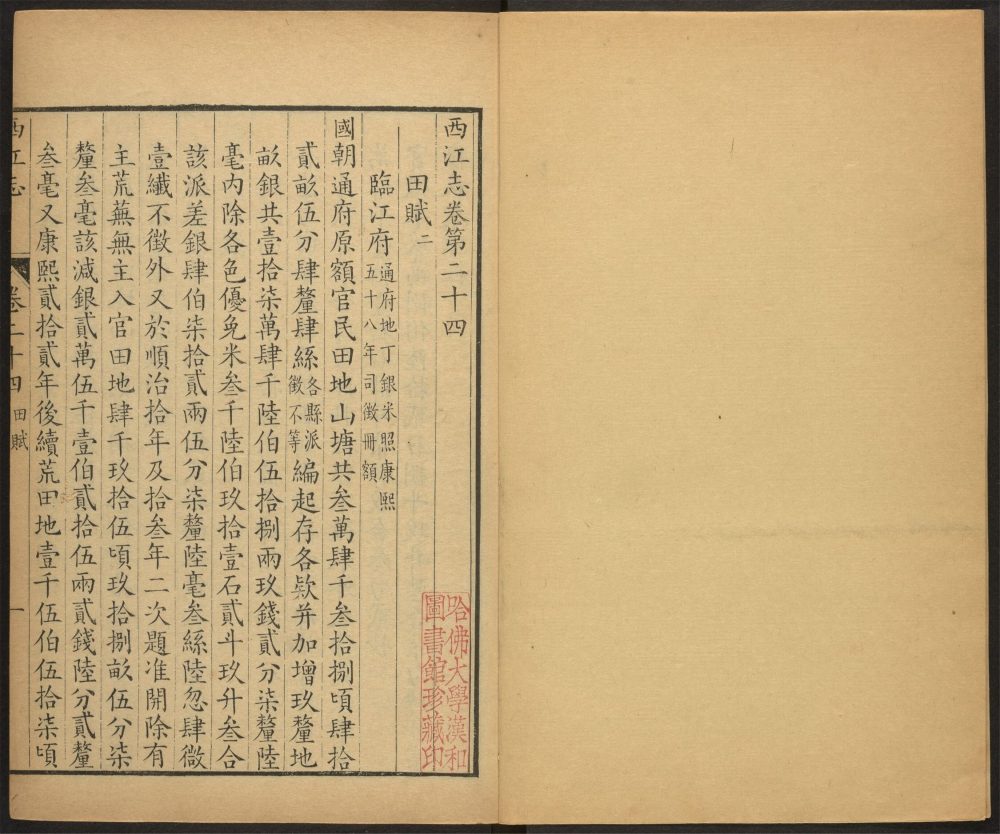 西江志卷第二十四
田賦二
臨江府通府地丁銀米照康熙五十八年司徵冊額
國朝通府原額官民田地山塘共叁萬肆千叁拾捌頃肆拾
貳畝伍分肆釐肆絲各縣派徵不等編起存各欵并加增玖釐地
畝銀共壹拾柒萬肆千陸伯伍拾捌兩玖錢貳分柒釐陸
毫内除各色優免米叁千陸伯玖拾壹石貳斗玖升叁合
該派差銀肆伯柒拾貳兩伍分柒釐陸毫叁絲陸忽肆微
壹纖不徵外又於順治拾年及拾叁年二次題准開除有
主荒蕪無主入官田地肆千玖拾伍頃玖拾捌畝伍分柒
釐叁毫該減銀貳萬伍千壹伯貳拾伍兩貳錢陸分貳釐
叁毫又康熙貳拾貳年後續荒田地壹千伍伯伍拾柒頃
西江志
卷二十四 田賦
一
哈佛大學漢和
圖書館珍藏印